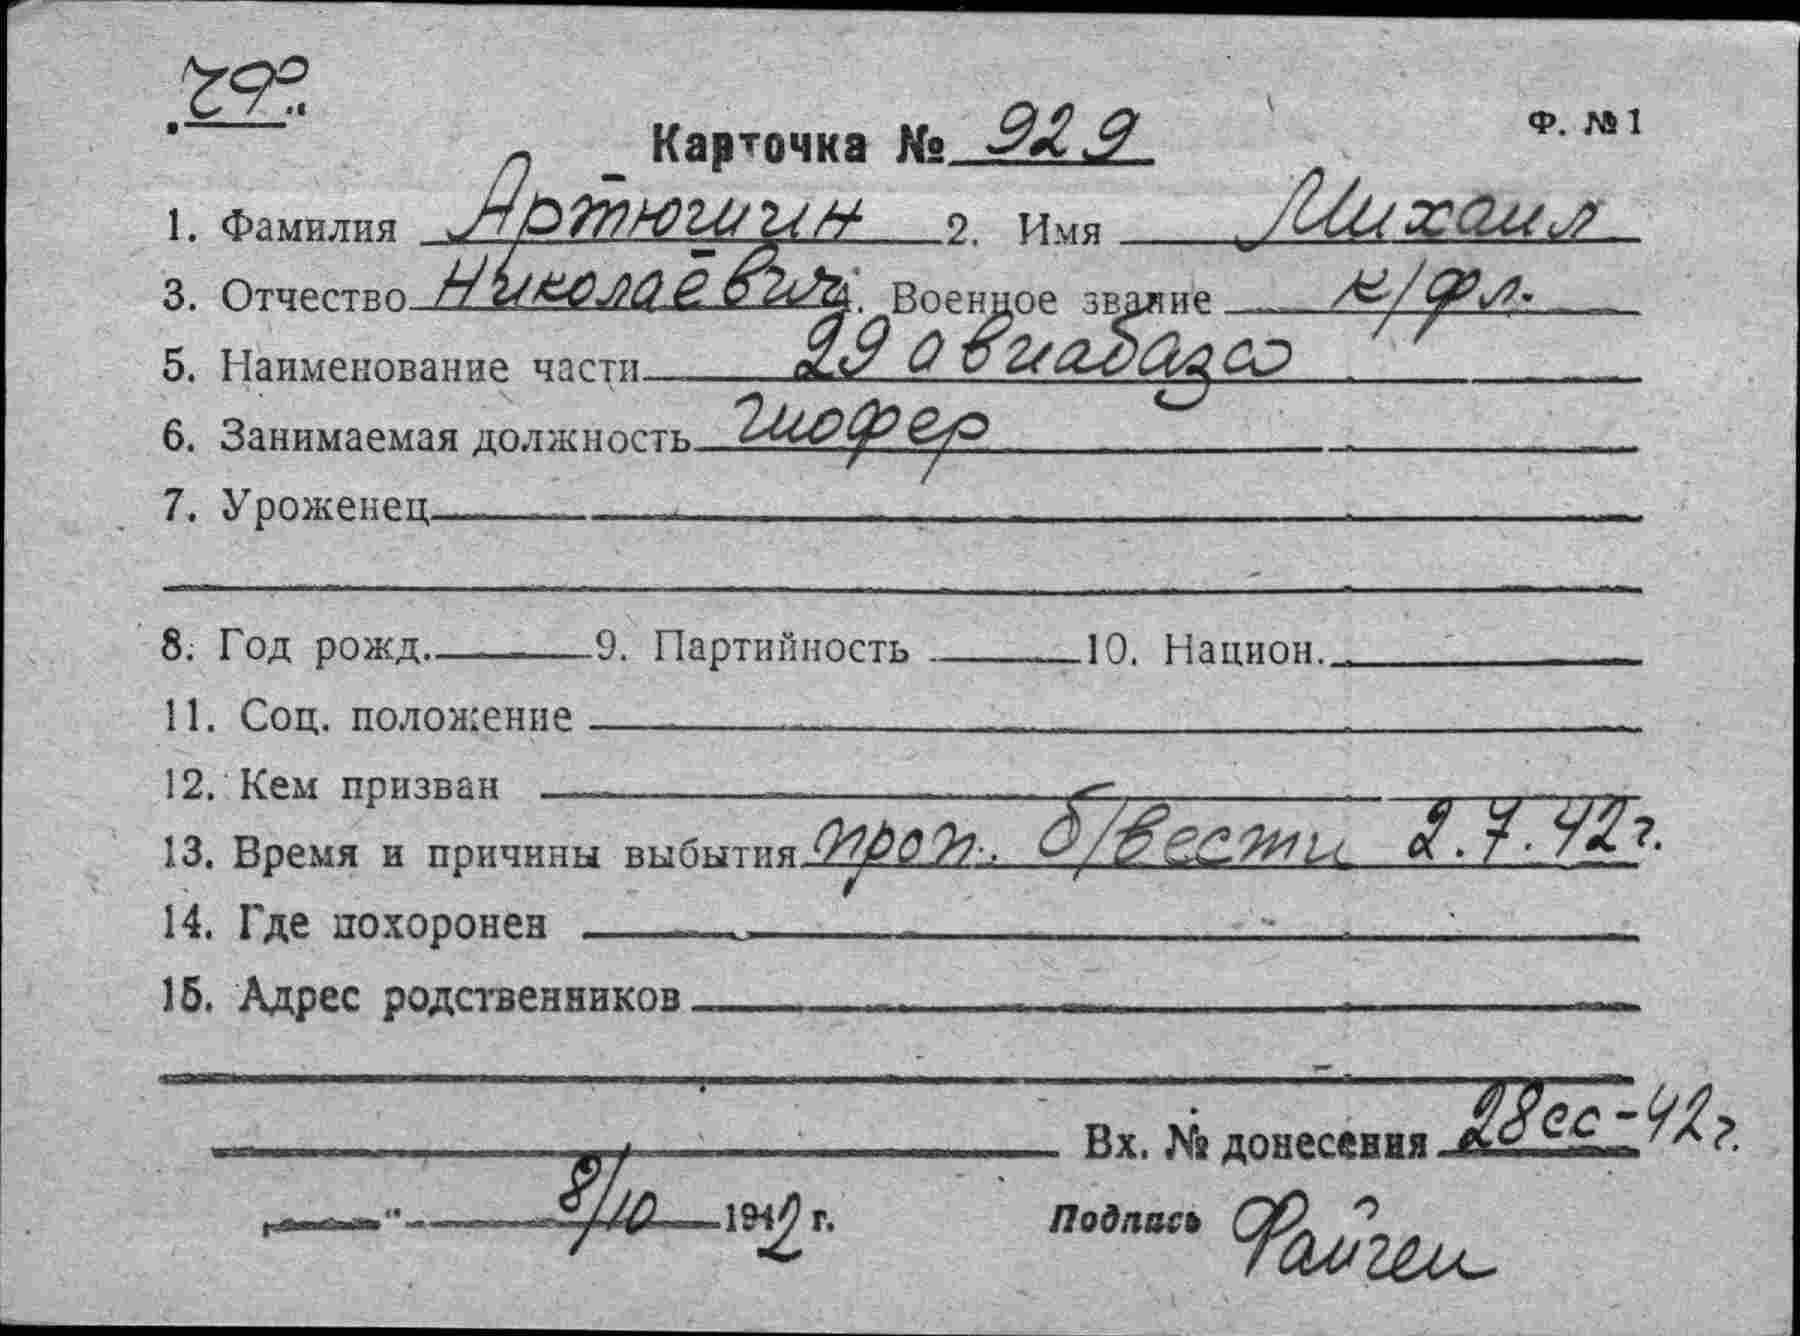 Карточка № 929 Ф. №1
1. Фамилия Артюшин 2. Имя Михаил
3. Отчество Николаевич 4. Военное звание к/фл.
5. Наименование части 29 авиабаза
6. Занимаемая должность шофер
7. Уроженец
8. Год рожд. 9. Партийность 10. Национ.
11. Соц. положение
12. Кем призван
13. Время и причины выбытия проп. б/вести 2.7.42г.
14. Где похоронен
15. Адрес родственников
Вх. № донесения 28сс-42г.
" 8/10 1942 г. Подпись